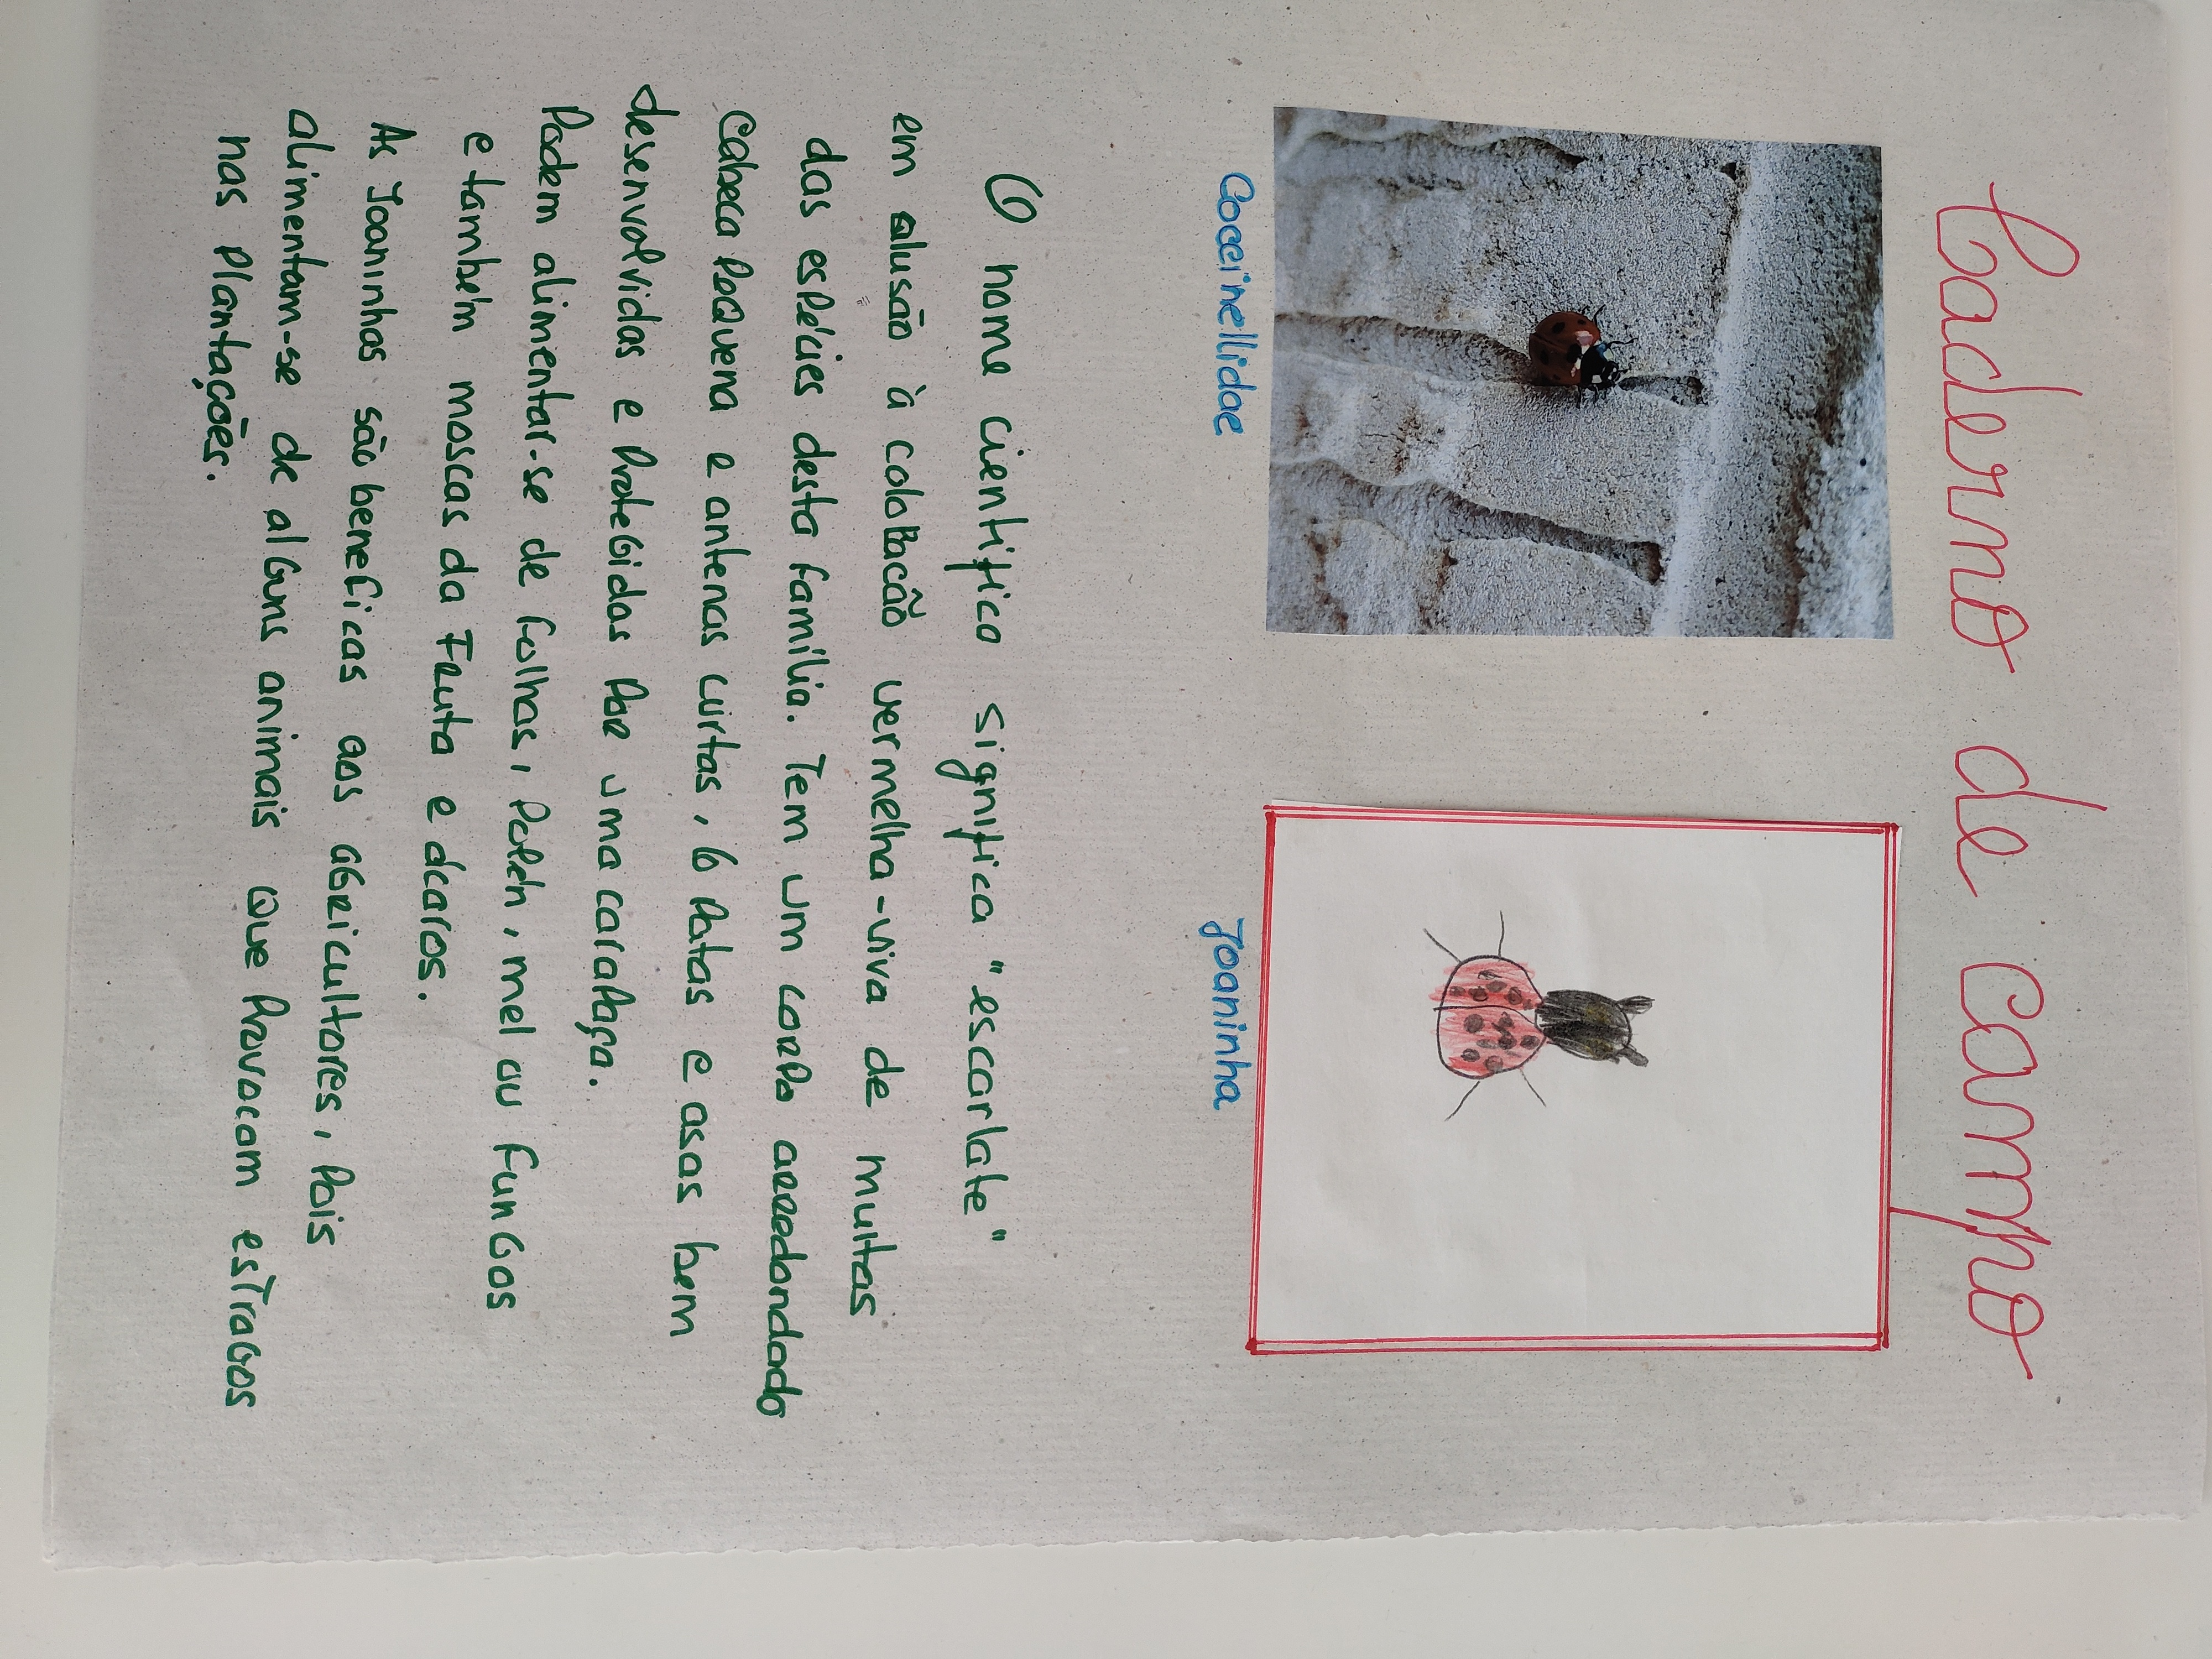 Caderno de campo
Coccinellidae
Joaninha
O nome cientifico significa "escarlate"
em alusão à colobacão vermelha-viva de muitas
das espécies desta família. Tem um corpo arredondado
cabeca pequena e antenas curtas, 6 patas e asas bem
desenvolvidas e protegidas por uma carapaça.
Podem alimentar-se de folhas, polén, mel ou fungos
e também moscas da Fruta e ácaros.
As Joaninhas são beneficas aos agricultores, pois
alimentam-se de alguns animais que provocam estragos
nas plantações.